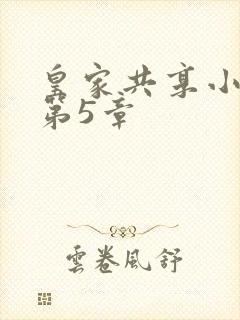 皇家共享小
第5章
雲卷風舒